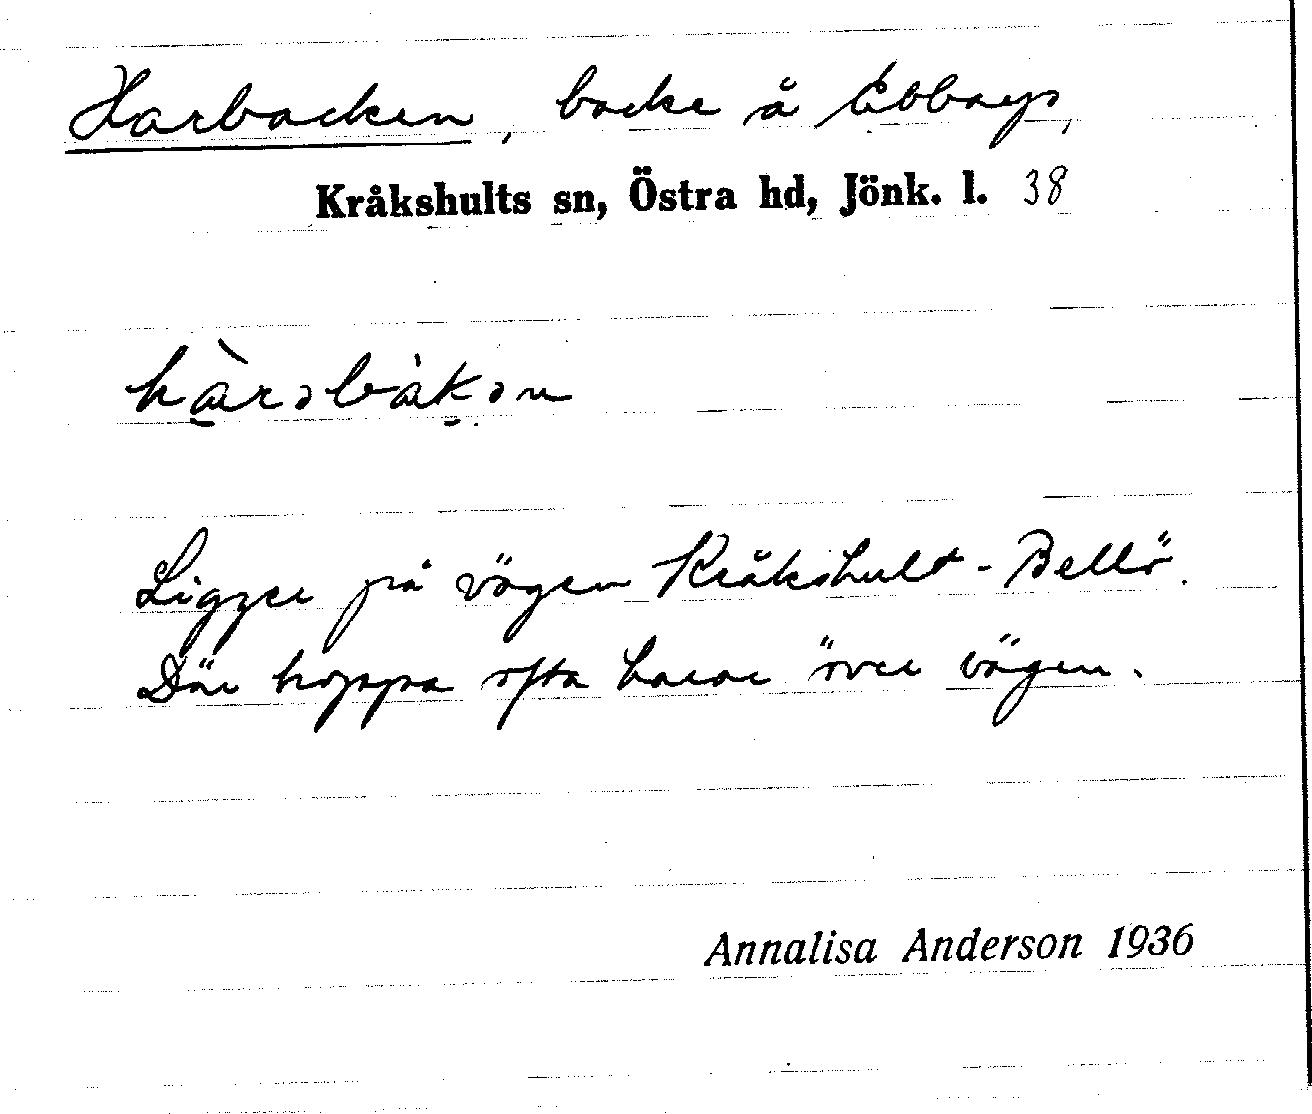 Harbacken, backe å Ebbarp,
Kråkshults sn, Östra hd, Jönk. l. 38
hàrəbàkən
Ligger på vägen Kråkshult-Bellö.
Där hoppa ofta harar över vägen.
Annalisa Anderson 1936